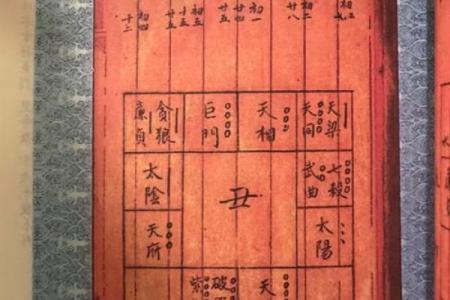 初二
廿八
初一
廿五
初五
十五
廿五
初四
天梁
天同
天相
巨門
貪狼
廉貞
七殺
武曲
太陰
丑
太陽
天府
天
破
紫